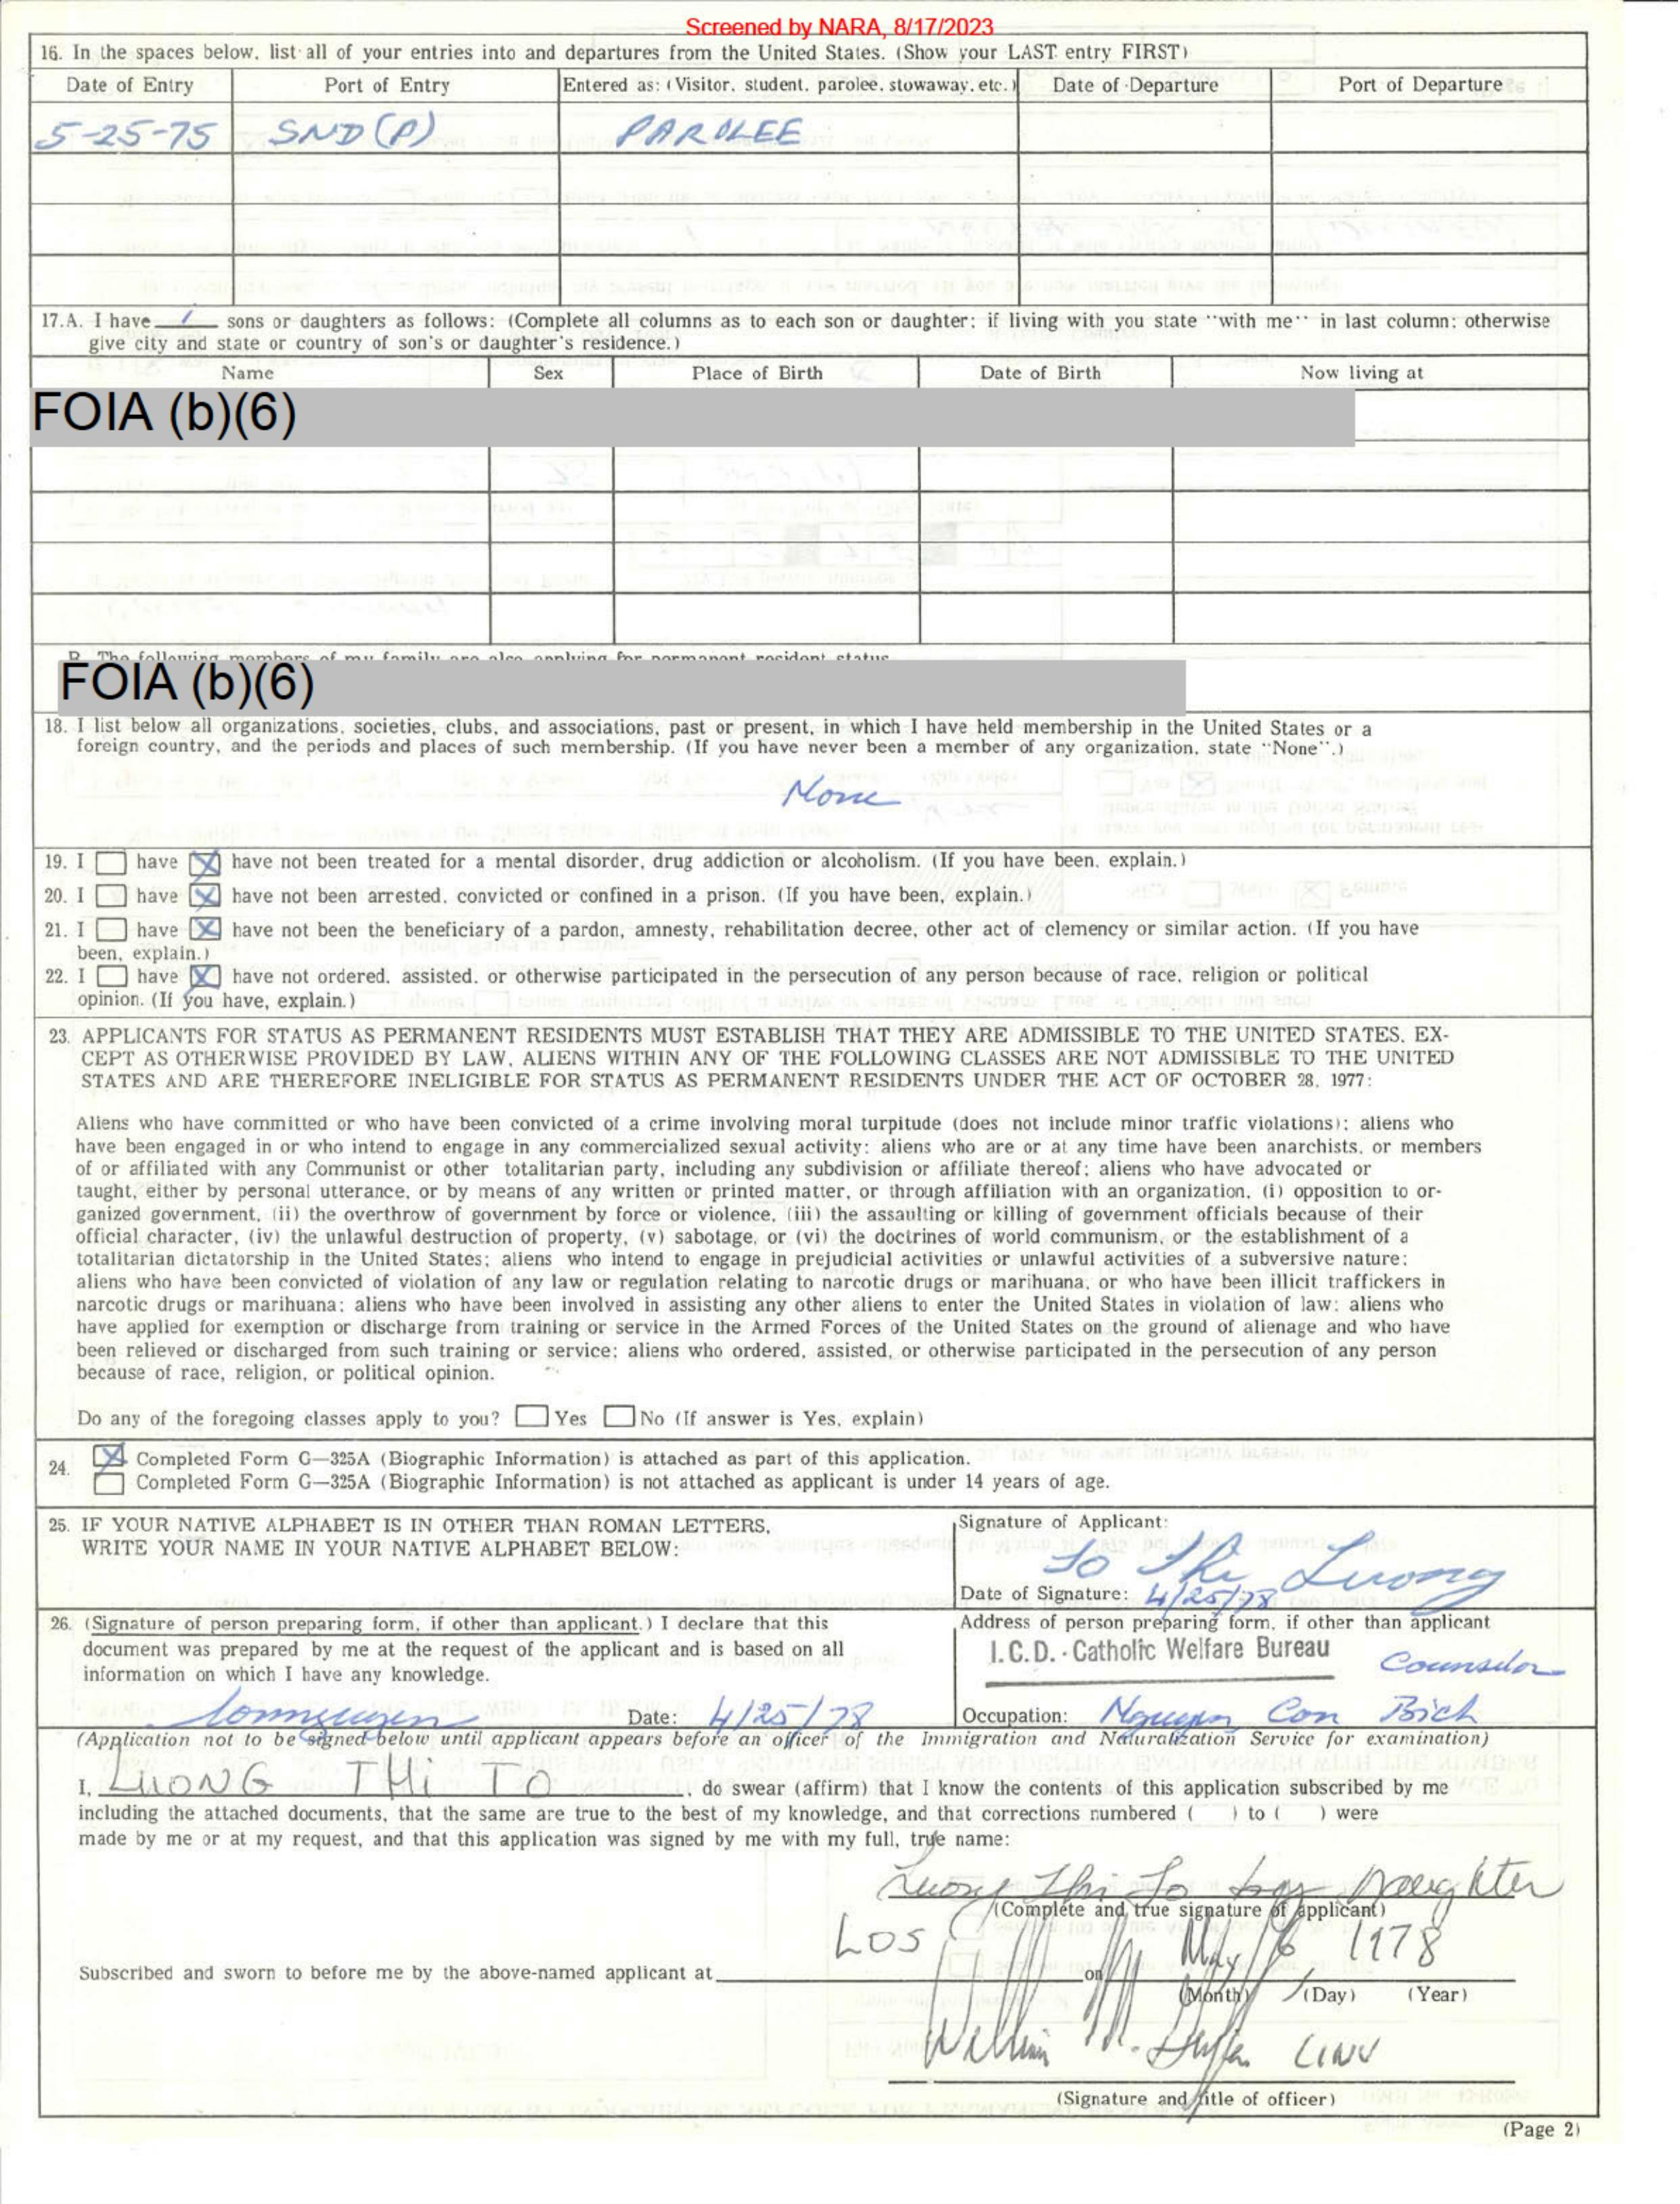 Screened by NARA, 8/17/2023
16. In the spaces below, list all of your entries into and departures from the United States. (Show your LAST entry FIRST)
Date of Entry Port of Entry Entered as: (Visitor, student, parolee, stowaway, etc.) Date of Departure Port of Departure
5-25-75 SND (P) PAROLEE
17.A. I have 1 sons or daughters as follows: (Complete all columns as to each son or daughter; if living with you state "with me" in last column; otherwise
give city and state or country of son's or daughter's residence.)
Name Sex Place of Birth Date of Birth Now living at
FOIA (b)(6)
B. The following members of my family are also applying for permanent resident status
FOIA (b)(6)
18. I list below all organizations, societies, clubs, and associations, past or present, in which I have held membership in the United States or a
foreign country, and the periods and places of such membership. (If you have never been a member of any organization, state "None".)
None
19. I have have not been treated for a mental disorder, drug addiction or alcoholism. (If you have been, explain.)
20. I have have not been arrested, convicted or confined in a prison. (If you have been, explain.)
21. I have have not been the beneficiary of a pardon, amnesty, rehabilitation decree, other act of clemency or similar action. (If you have
been, explain.)
22. I have have not ordered, assisted, or otherwise participated in the persecution of any person because of race, religion or political
opinion. (If you have, explain.)
23. APPLICANTS FOR STATUS AS PERMANENT RESIDENTS MUST ESTABLISH THAT THEY ARE ADMISSIBLE TO THE UNITED STATES. EX-
CEPT AS OTHERWISE PROVIDED BY LAW, ALIENS WITHIN ANY OF THE FOLLOWING CLASSES ARE NOT ADMISSIBLE TO THE UNITED
STATES AND ARE THEREFORE INELIGIBLE FOR STATUS AS PERMANENT RESIDENTS UNDER THE ACT OF OCTOBER 28, 1977:
Aliens who have committed or who have been convicted of a crime involving moral turpitude (does not include minor traffic violations); aliens who
have been engaged in or who intend to engage in any commercialized sexual activity; aliens who are or at any time have been anarchists, or members
of or affiliated with any Communist or other totalitarian party, including any subdivision or affiliate thereof; aliens who have advocated or
taught, either by personal utterance, or by means of any written or printed matter, or through affiliation with an organization, (i) opposition to or-
ganized government, (ii) the overthrow of government by force or violence, (iii) the assaulting or killing of government officials because of their
official character, (iv) the unlawful destruction of property, (v) sabotage, or (vi) the doctrines of world communism, or the establishment of a
totalitarian dictatorship in the United States; aliens who intend to engage in prejudicial activities or unlawful activities of a subversive nature;
aliens who have been convicted of violation of any law or regulation relating to narcotic drugs or marihuana, or who have been illicit traffickers in
narcotic drugs or marihuana; aliens who have been involved in assisting any other aliens to enter the United States in violation of law; aliens who
have applied for exemption or discharge from training or service in the Armed Forces of the United States on the ground of alienage and who have
been relieved or discharged from such training or service; aliens who ordered, assisted, or otherwise participated in the persecution of any person
because of race, religion, or political opinion.
Do any of the foregoing classes apply to you? Yes No (If answer is Yes, explain)
24. Completed Form G-325A (Biographic Information) is attached as part of this application.
Completed Form G-325A (Biographic Information) is not attached as applicant is under 14 years of age.
25. IF YOUR NATIVE ALPHABET IS IN OTHER THAN ROMAN LETTERS,
WRITE YOUR NAME IN YOUR NATIVE ALPHABET BELOW:
Signature of Applicant:
To Thi Luong
Date of Signature: 4/25/78
26. (Signature of person preparing form, if other than applicant.) I declare that this
document was prepared by me at the request of the applicant and is based on all
information on which I have any knowledge.
Date: 4/25/78
Address of person preparing form, if other than applicant
I.C.D. - Catholic Welfare Bureau
Counselor
Occupation: Nguyen Con Bich
(Application not to be signed below until applicant appears before an officer of the Immigration and Naturalization Service for examination)
I, LUONG THI TO, do swear (affirm) that I know the contents of this application subscribed by me
including the attached documents, that the same are true to the best of my knowledge, and that corrections numbered ( ) to ( ) were
made by me or at my request, and that this application was signed by me with my full, true name:
Luong Thi To by Daughter
(Complete and true signature of applicant)
LOS May 16 1978
Subscribed and sworn to before me by the above-named applicant at on
(Month) (Day) (Year)
William M.
(Signature and title of officer)
(Page 2)